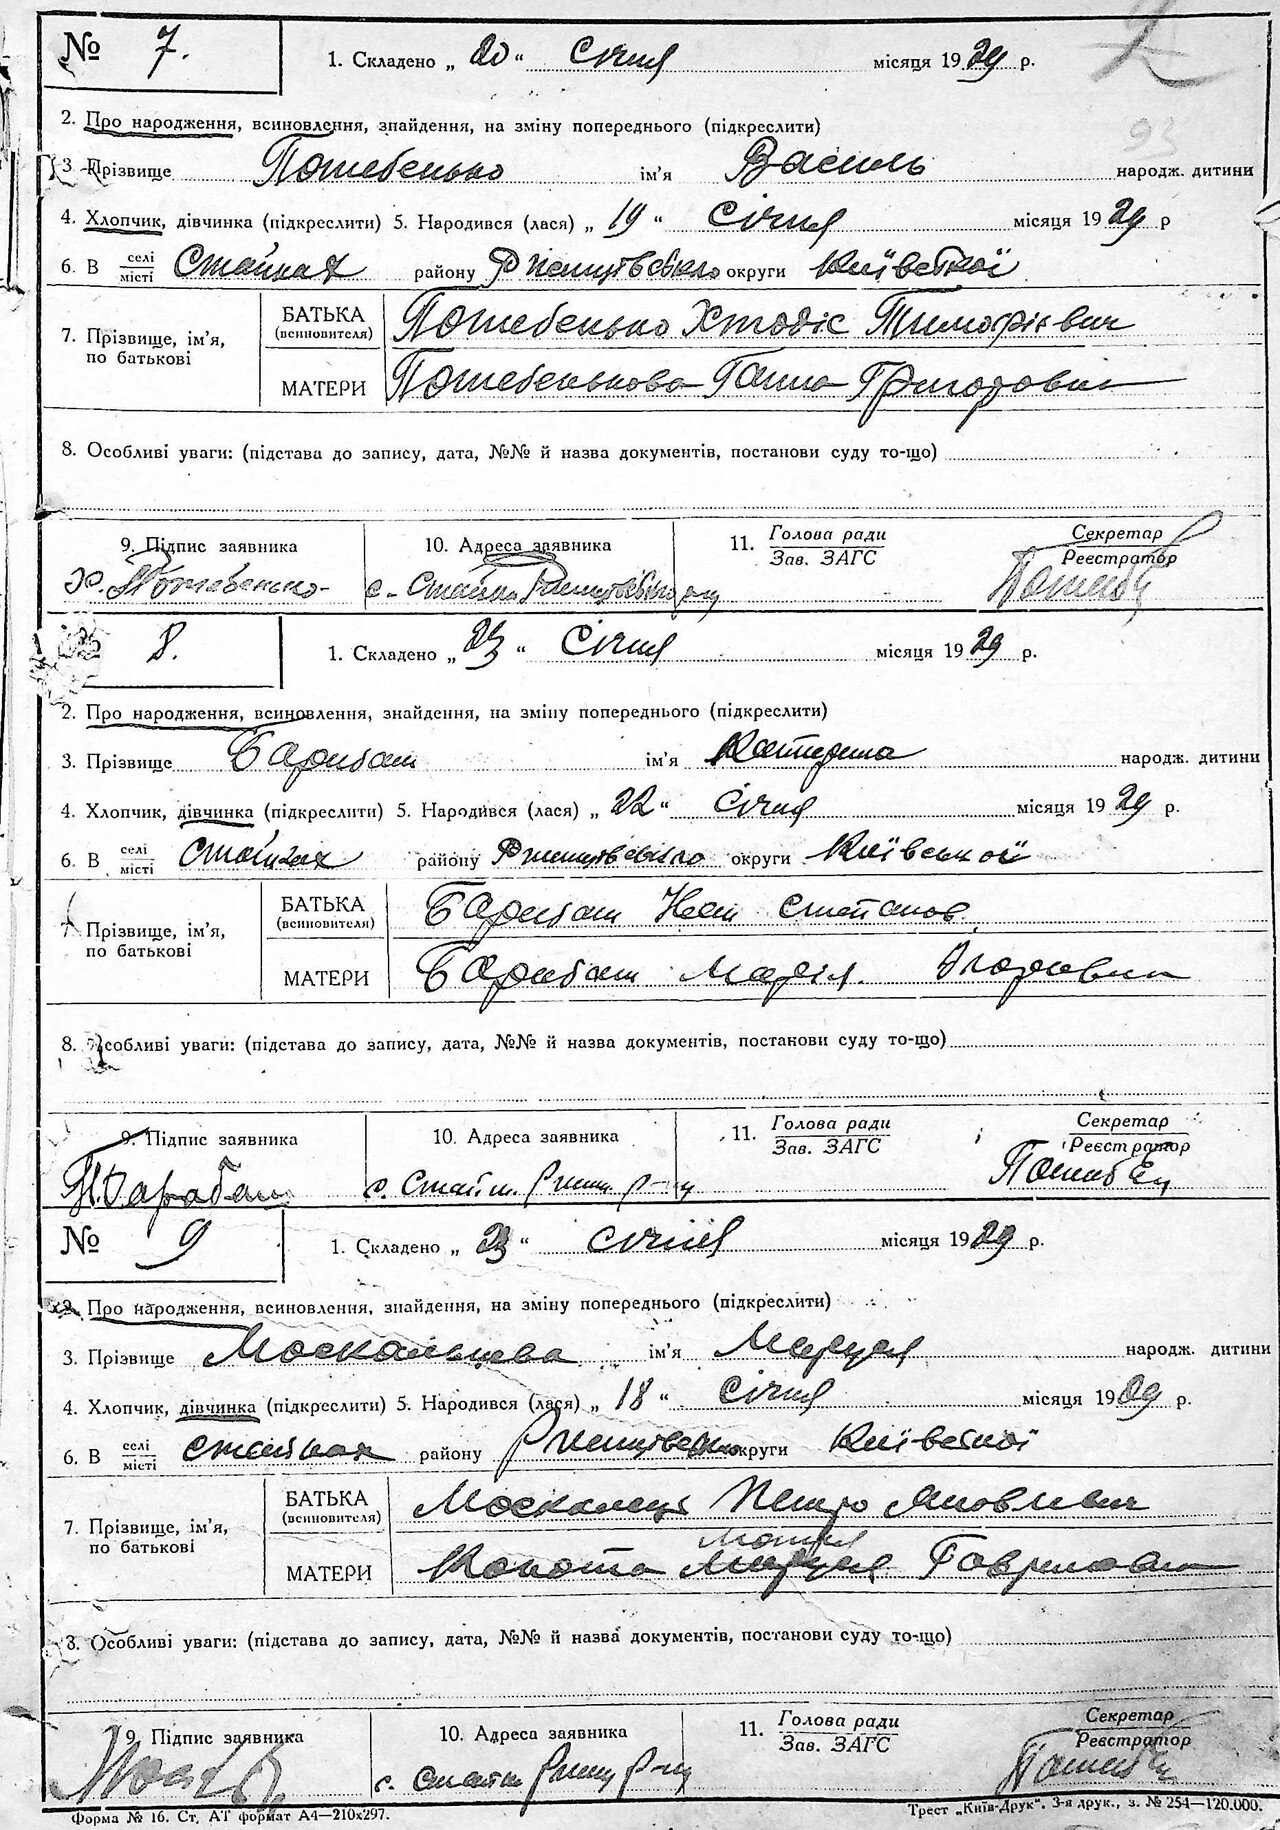 № 7. 1. Складено „ 20 “ Січня місяця 1929 р.
2
93
2. Про народження, всиновлення, знайдення, на зміну попереднього (підкреслити)
3. Прізвище Потебенько ім'я Василь народж. дитини
4. Хлопчик, дівчинка (підкреслити) 5. Народився (лася) „ 19 “ Січня місяця 1929 р
6. В селі місті Стайках району Ржищівсько округи Київської
7. Прізвище, ім'я, по батькові БАТЬКА (всиновителя) Потебенько Тимофієвич
МАТЕРИ Потебенькова Ганна Григоровна
8. Особливі уваги: (підстава до запису, дата, №№ й назва документів, постанови суду то-що)
9. Підпис заявника 10. Адреса заявника 11. Голова ради Зав. ЗАГС Секретар Реєстратор
Х. Потебенько с. Стайки Потебе
№ 8. 1. Складено „ 23 “ Січня місяця 1929 р.
2. Про народження, всиновлення, знайдення, на зміну попереднього (підкреслити)
3. Прізвище Барабаш ім'я Катерина народж. дитини
4. Хлопчик, дівчинка (підкреслити) 5. Народився (лася) „ 22 “ Січня місяця 1929 р.
6. В селі місті Стайках району Ржищівсько округи Київської
7. Прізвище, ім'я, по батькові БАТЬКА (всиновителя) Барабаш Степанов
МАТЕРИ Барабаш Марія
8. Особливі уваги: (підстава до запису, дата, №№ й назва документів, постанови суду то-що)
9. Підпис заявника 10. Адреса заявника 11. Голова ради Зав. ЗАГС Секретар Реєстратор
Барабаш с. Стайки Ржищ р-ну
№ 9 1. Складено „ 23 “ січня місяця 1929 р.
2. Про народження, всиновлення, знайдення, на зміну попереднього (підкреслити)
3. Прізвище Москальцева ім'я Маруся народж. дитини
4. Хлопчик, дівчинка (підкреслити) 5. Народився (лася) „ 18 “ Січня місяця 1929 р.
6. В селі місті стайках району Ржищівсько округи Київської
7. Прізвище, ім'я, по батькові БАТЬКА (всиновителя) Москалець Петро Якович
МАТЕРИ Копота Маруся Гавриловна
8. Особливі уваги: (підстава до запису, дата, №№ й назва документів, постанови суду то-що)
9. Підпис заявника 10. Адреса заявника 11. Голова ради Зав. ЗАГС Секретар Реєстратор
с. Стайки Ржищ р-ну
Форма № 16. Ст. АТ формат А4—210х297. Трест „Київ-Друк“. 3-я друк., з. № 254—120.000.